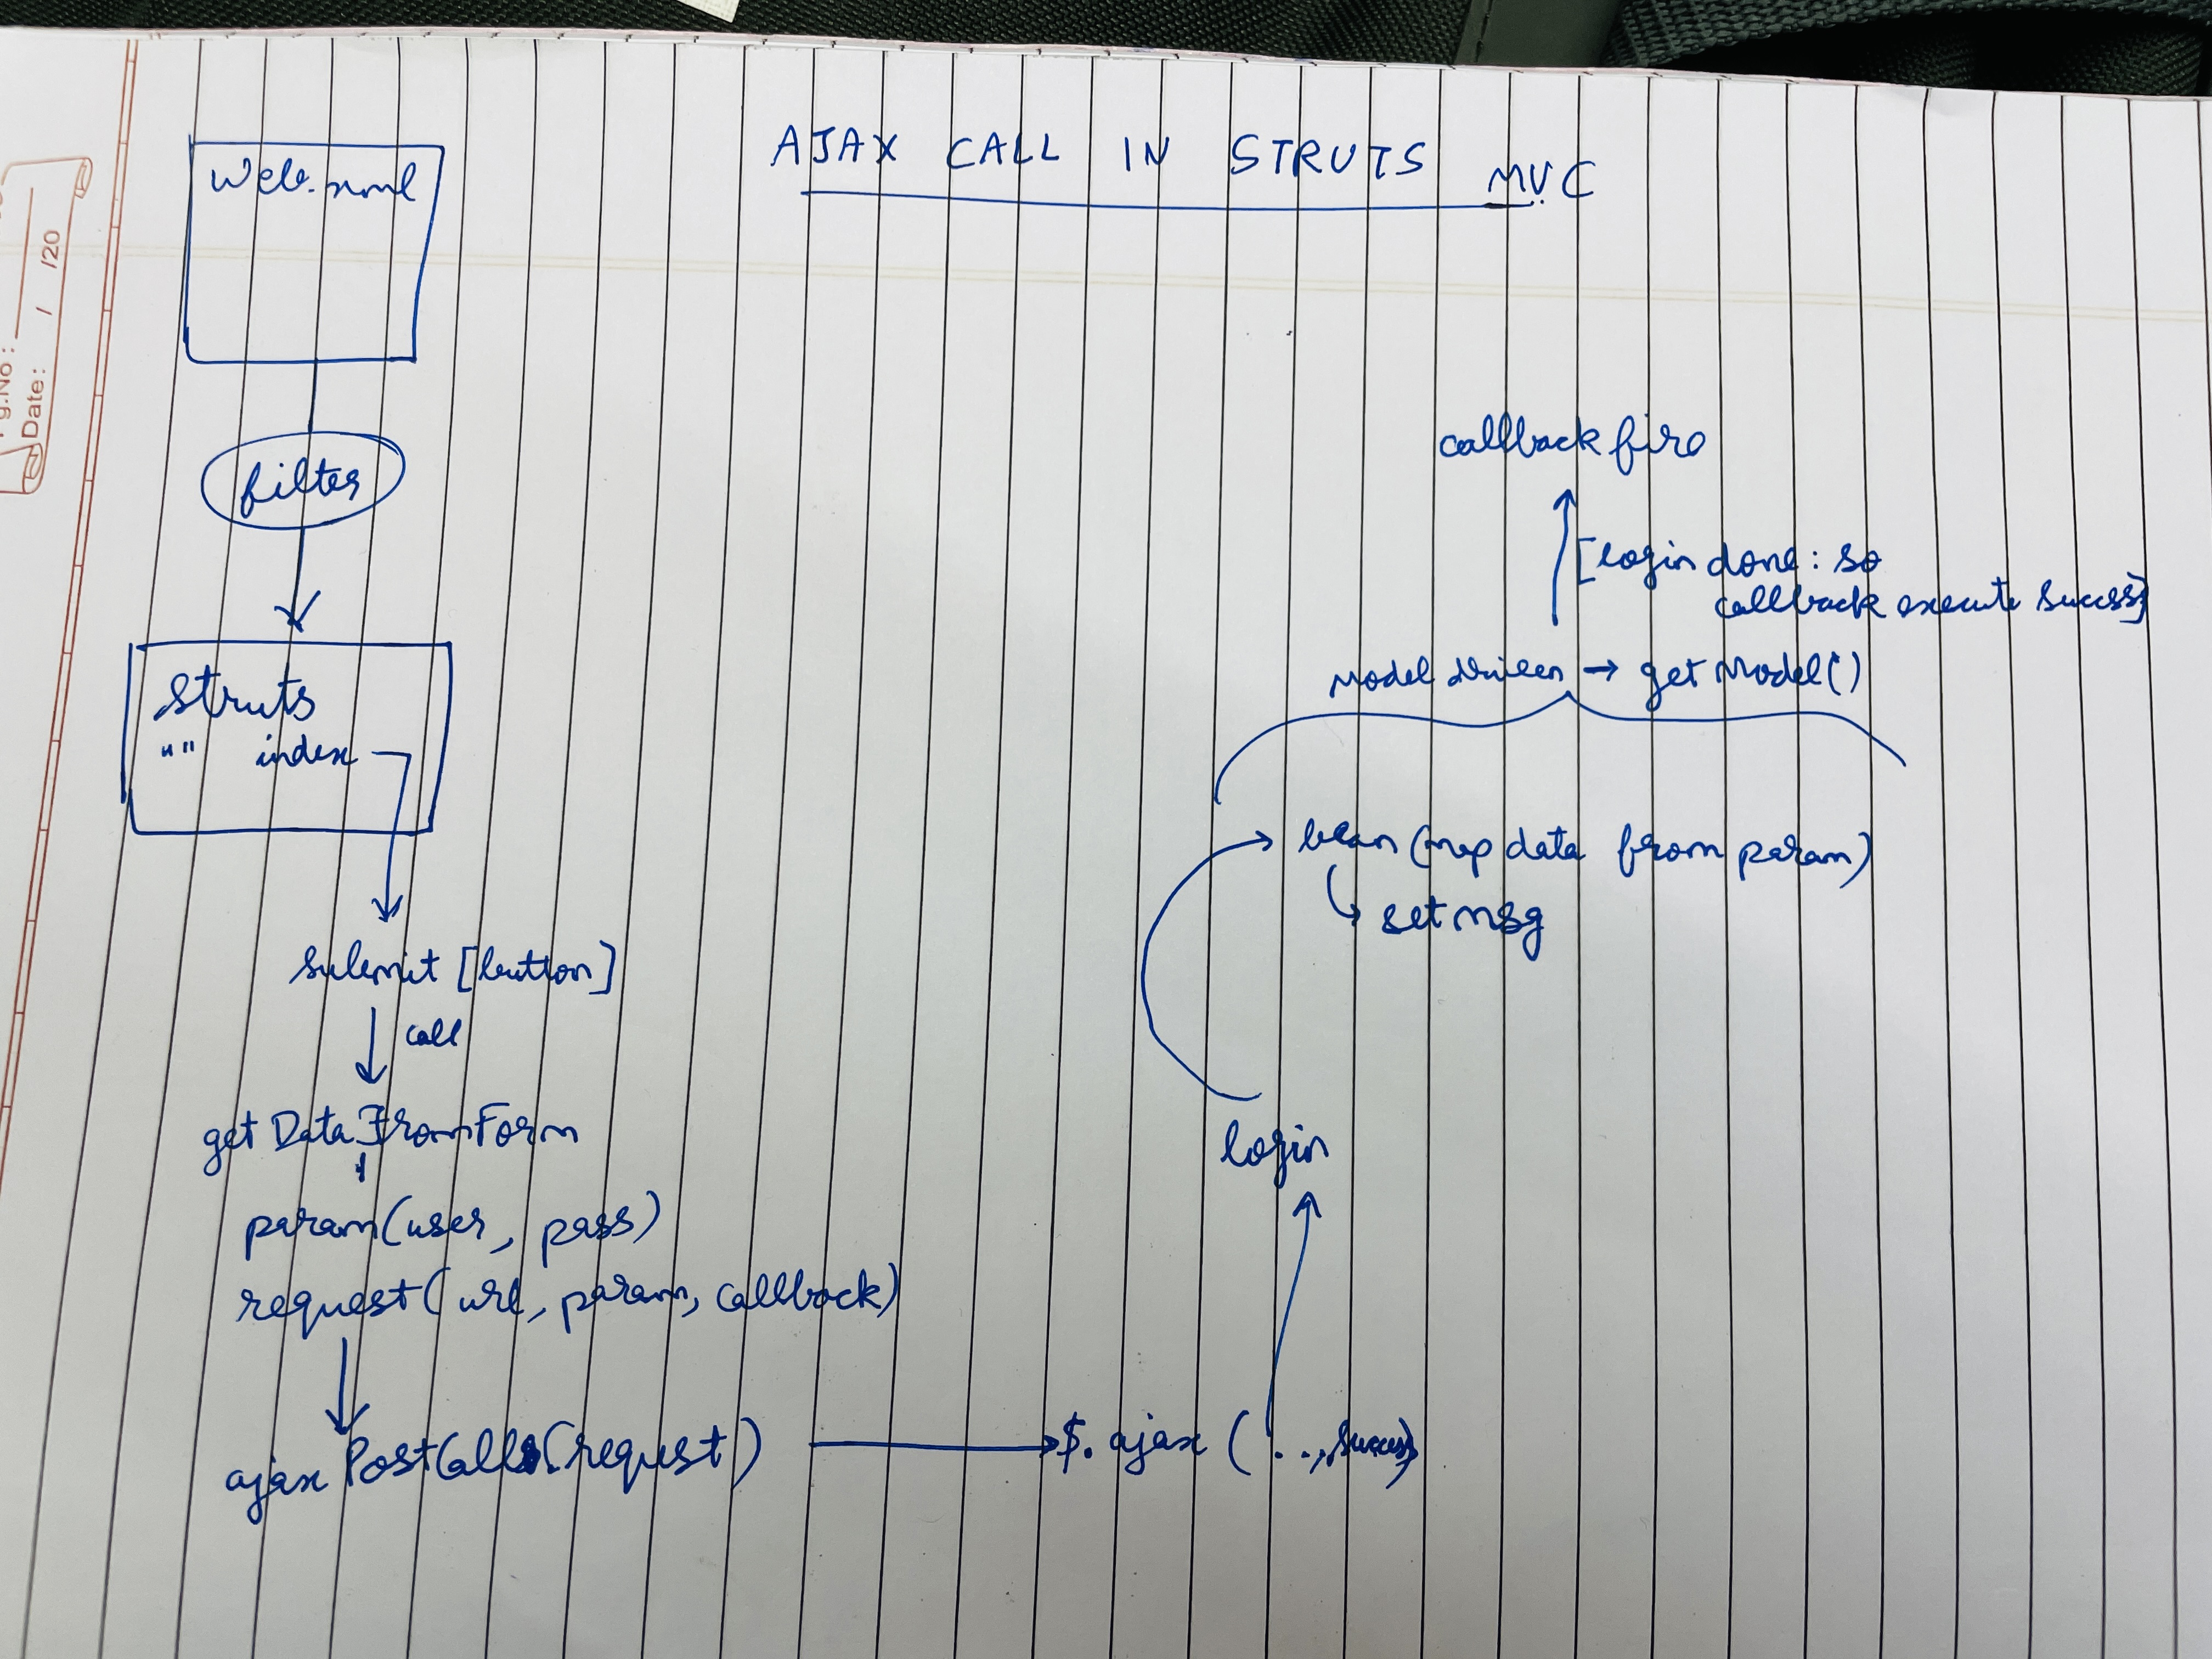 AJAX CALL IN STRUTS MVC
Web.xml
filter
struts
"" index
submit [button]
call
getDataFromForm
param(user, pass)
request( url, param, callback)
ajaxPostCall(request)
$.ajax ( . . , success)
login
bean (map data from param)
set msg
Model driven → getModel()
[login done : so
callback execute success]
callback fire
Date: / /20